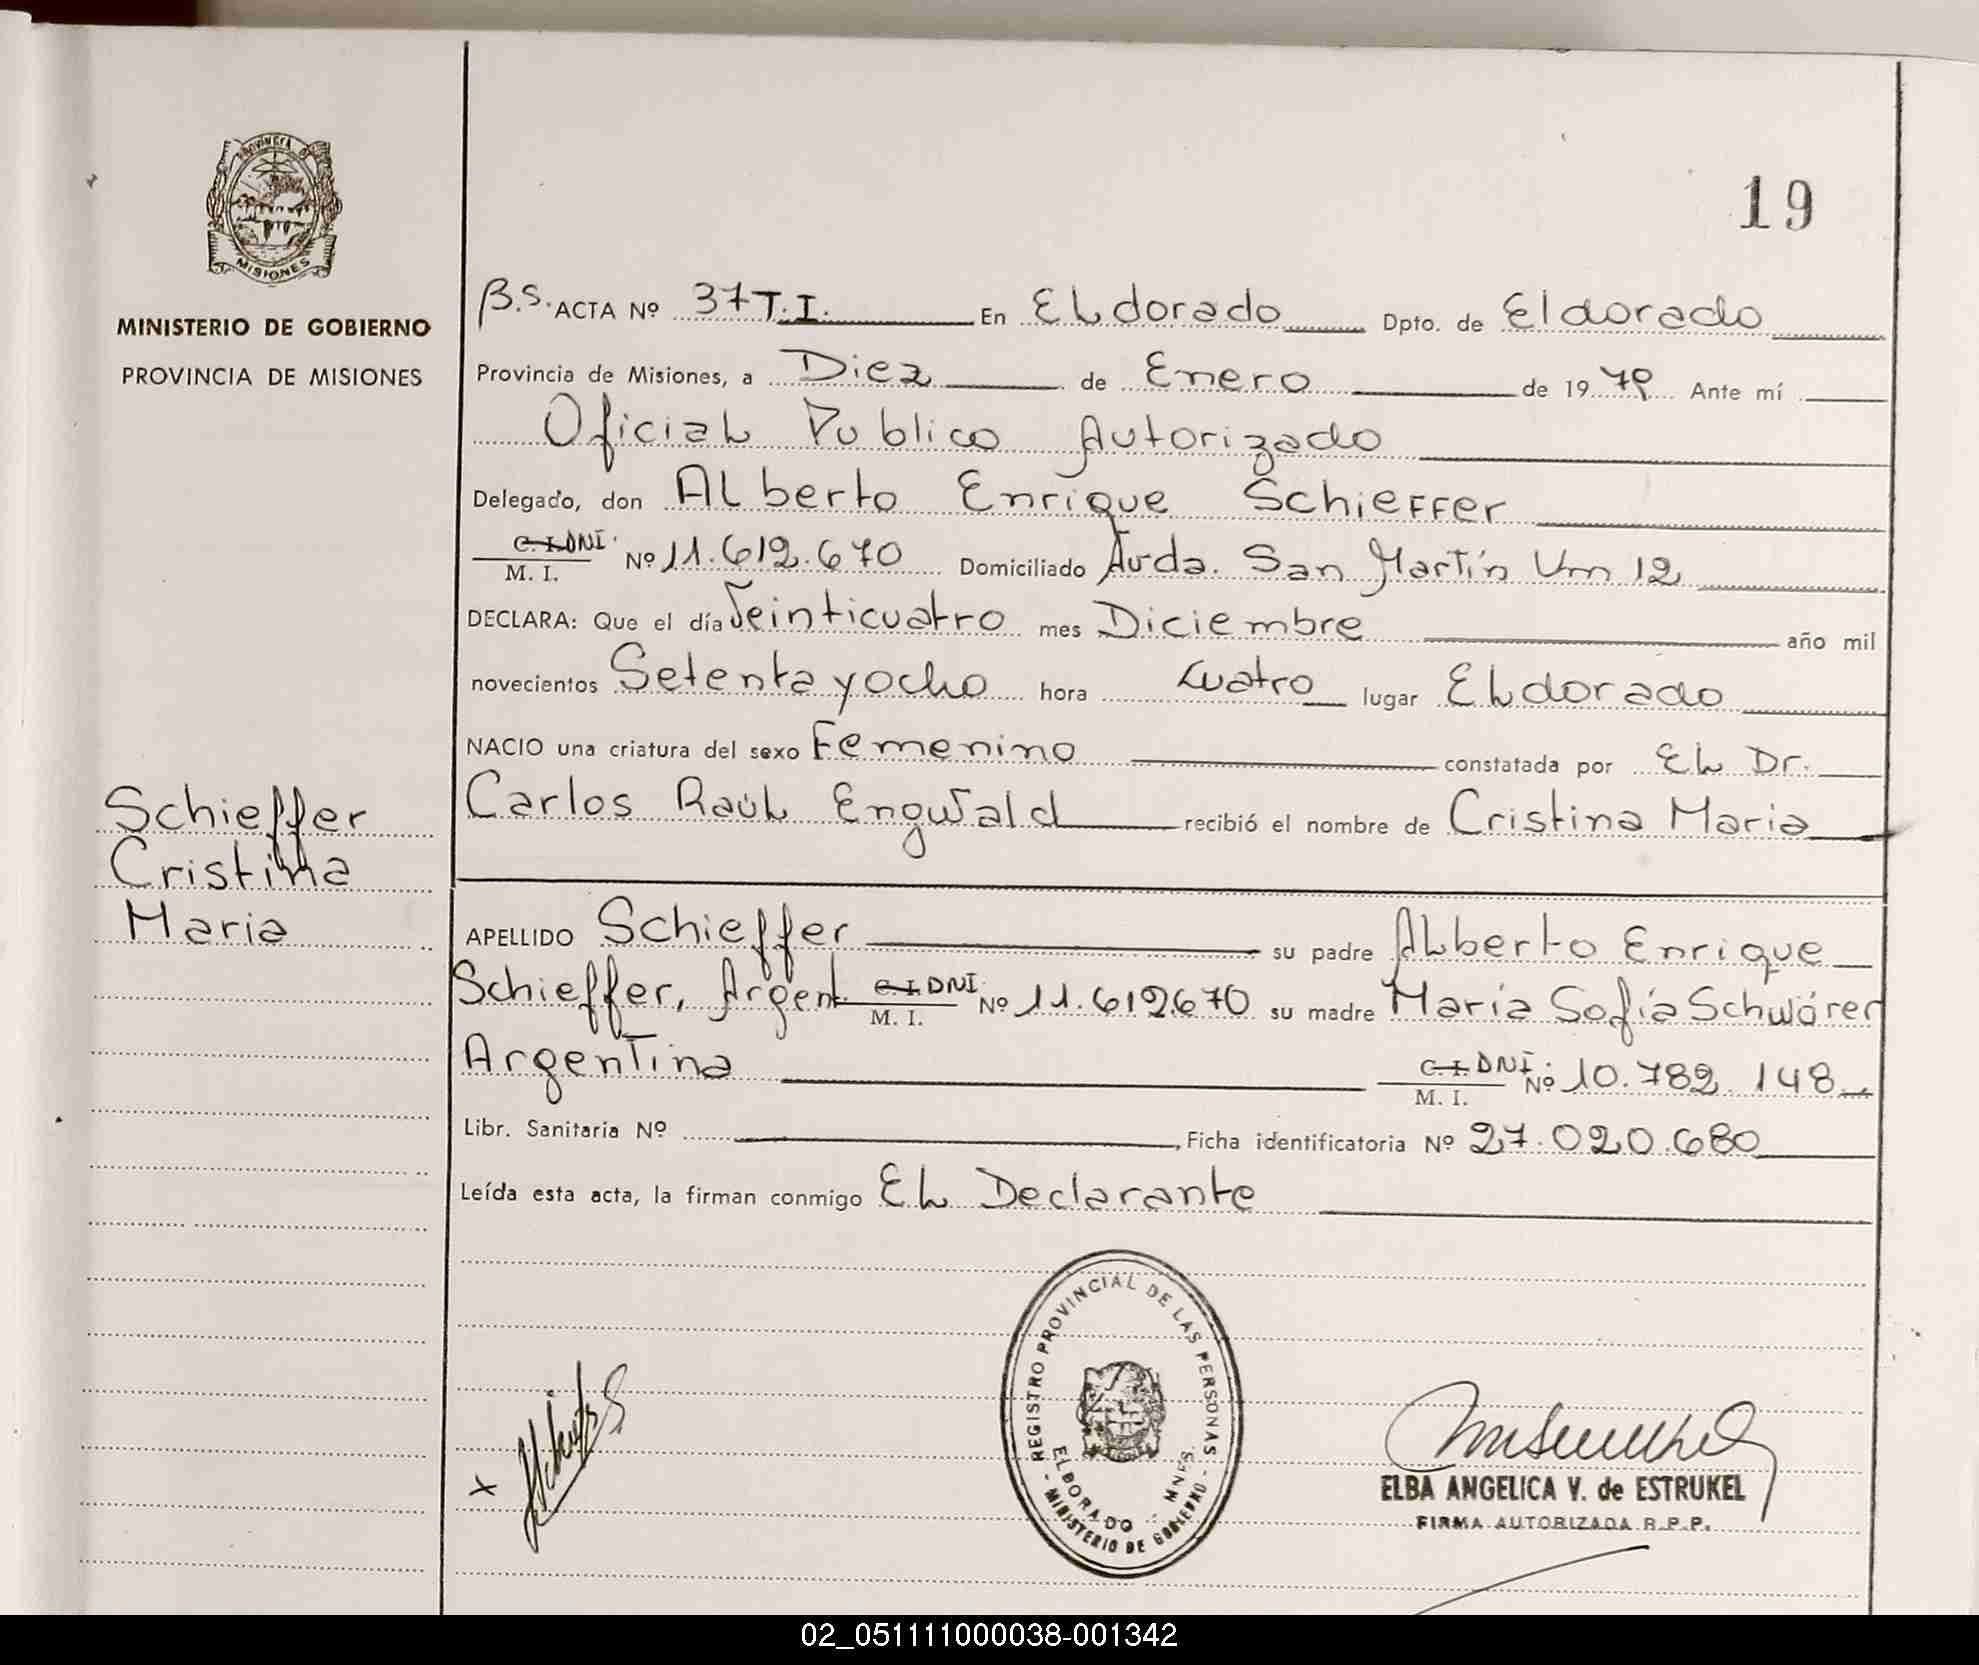 PROVINCIA DE
MISIONES
MINISTERIO DE GOBIERNO
PROVINCIA DE MISIONES
19
B.S. ACTA Nº 37 T.I. En Eldorado Dpto. de Eldorado
Provincia de Misiones, a Diez de Enero de 1979 Ante mí
Oficial Publico Autorizado
Delegado, don Alberto Enrique Schieffer
C.I. DNI. M. I. Nº 11.612.670 Domiciliado Avda. San Martín Km 12
DECLARA: Que el día Veinticuatro mes Diciembre año mil
novecientos Setenta y ocho hora Cuatro lugar Eldorado
NACIO una criatura del sexo Femenino constatada por El Dr.
Carlos Raúl Engwald recibió el nombre de Cristina Maria
Schieffer
Cristina
Maria
APELLIDO Schieffer su padre Alberto Enrique
Schieffer, Argent. C.I. DNI. M. I. Nº 11.612670 su madre María Sofía Schwórer
Argentina C.I. DNI. M. I. Nº 10.782.148
Libr. Sanitaria Nº , Ficha identificatoria Nº 27.020.680
Leída esta acta, la firman conmigo El Declarante
REGISTRO PROVINCIAL DE LAS PERSONAS
ELDORADO - MNES.
- MINISTERIO DE GOBIERNO -
x
ELBA ANGELICA V. de ESTRUKEL
FIRMA AUTORIZADA R.P.P.
02_051111000038-001342